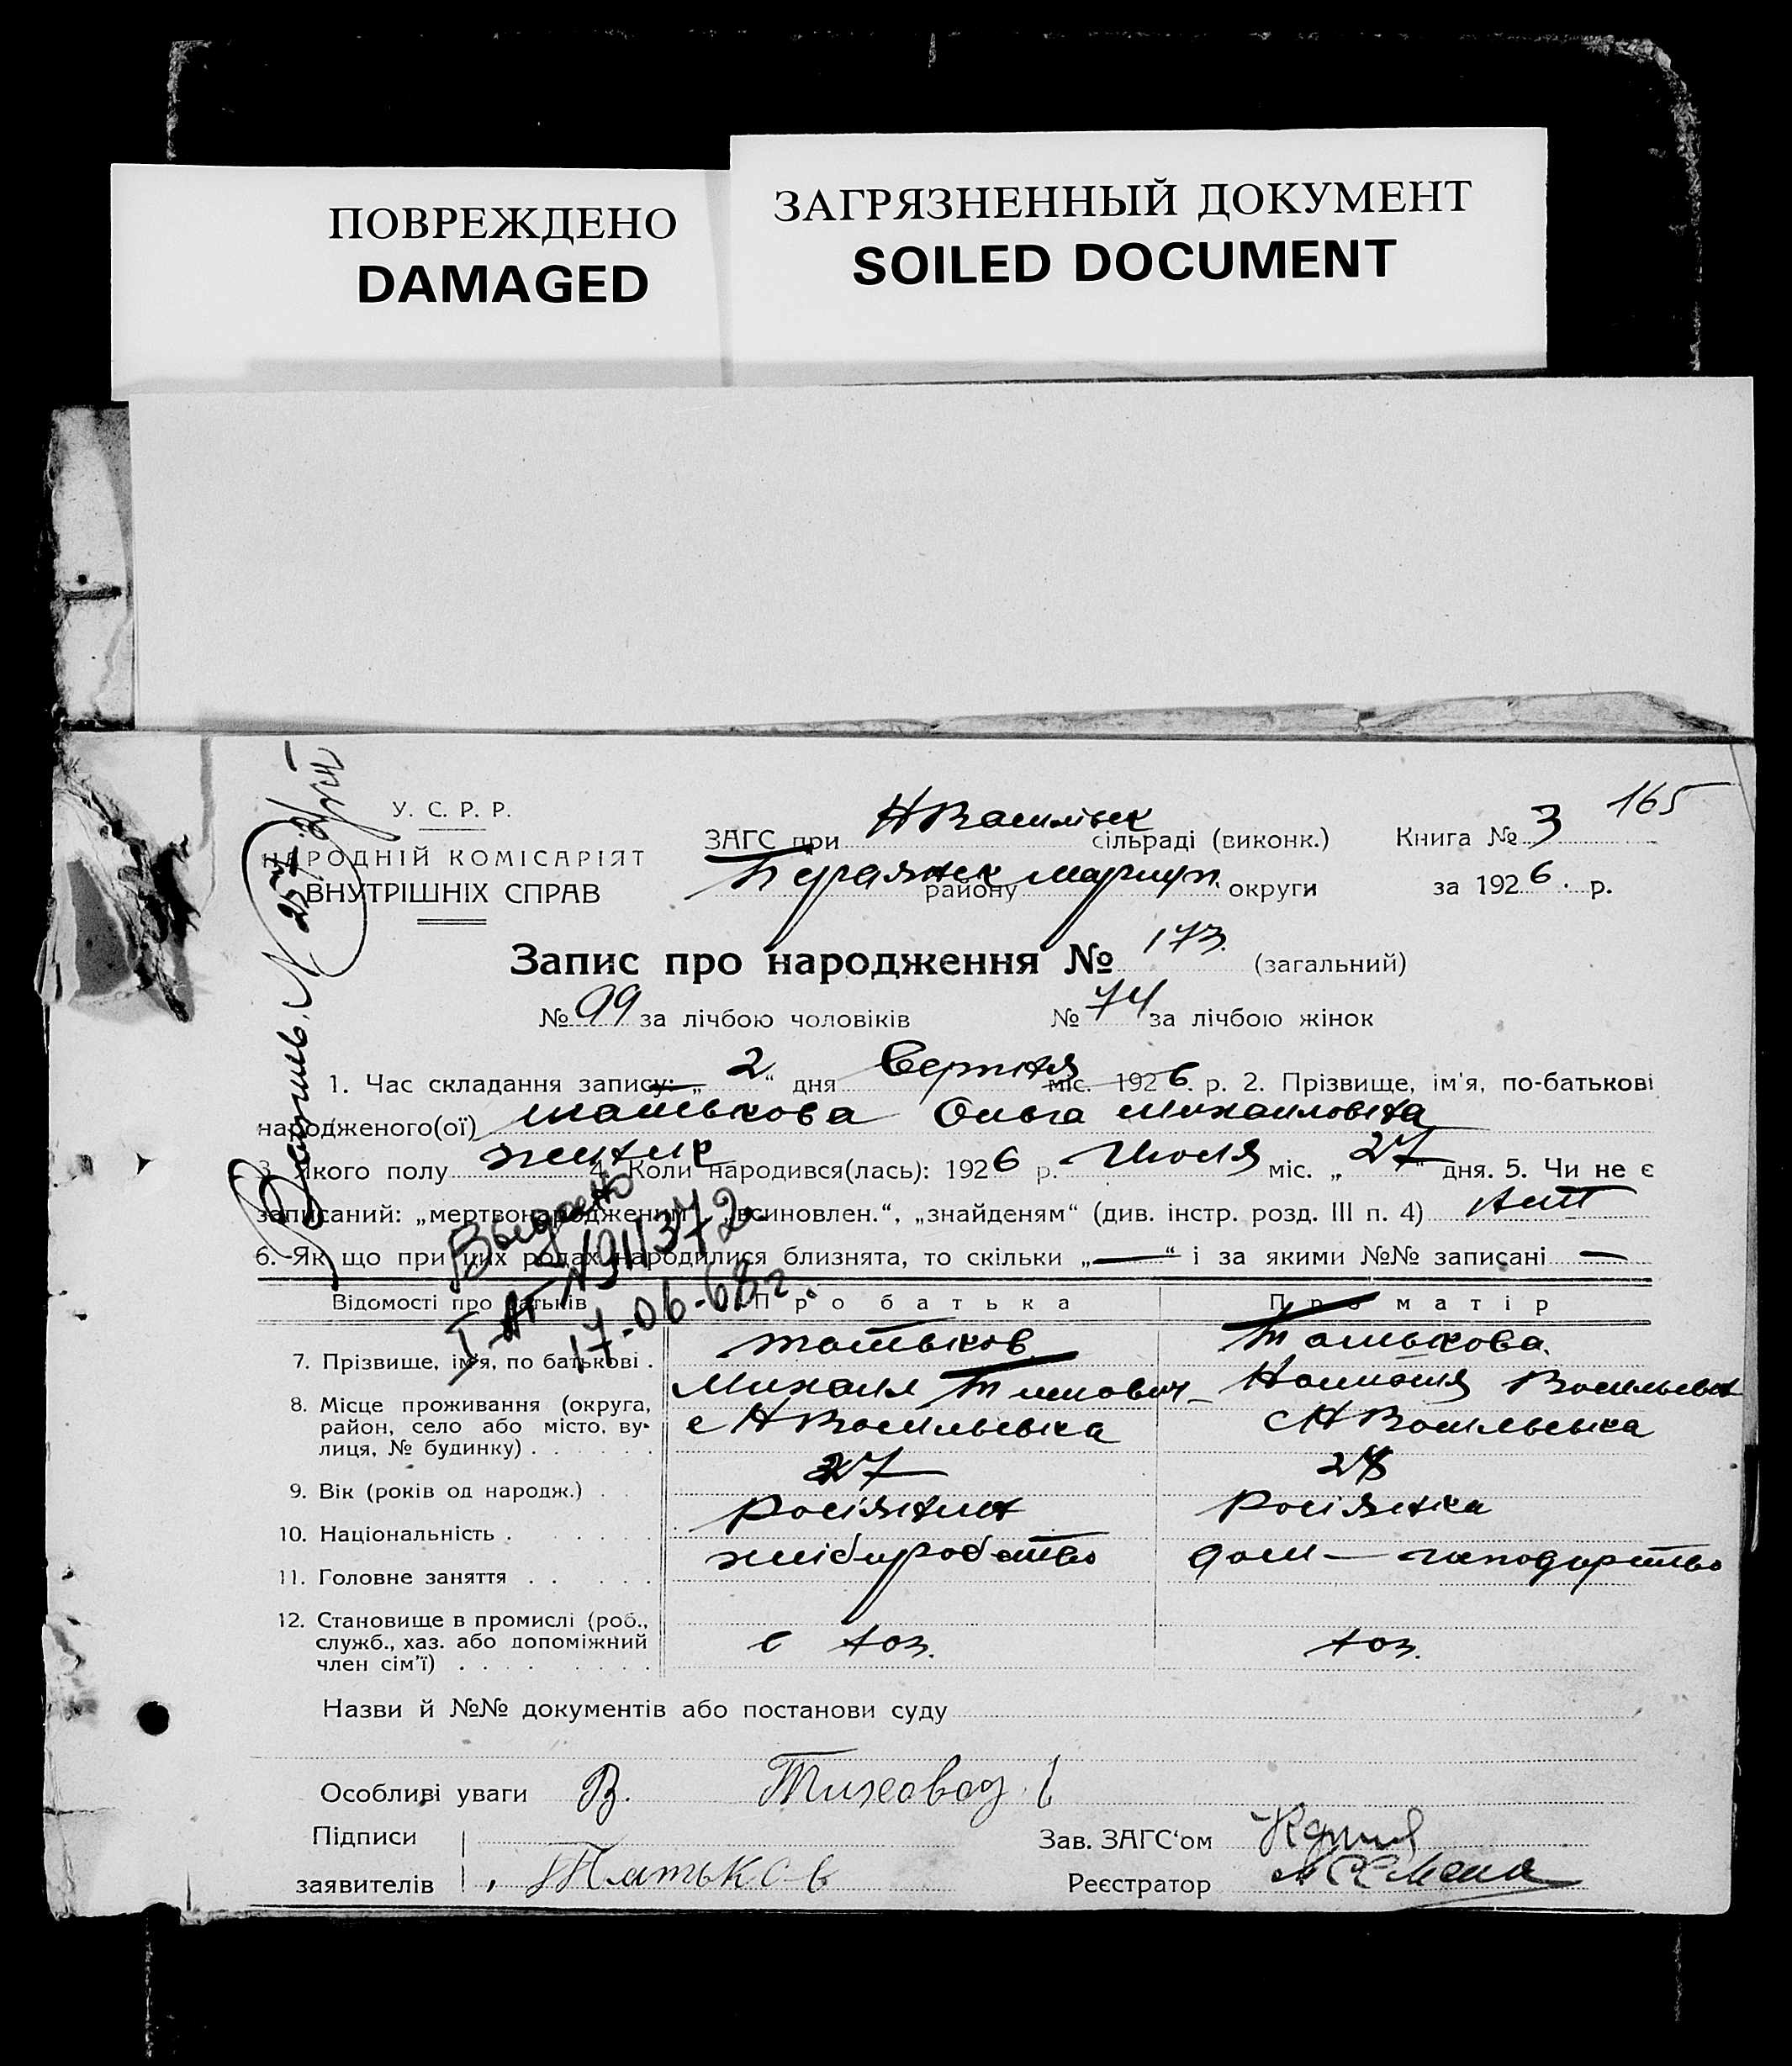 ПОВРЕЖДЕНО
DAMAGED
ЗАГРЯЗНЕННЫЙ ДОКУМЕНТ
SOILED DOCUMENT
165
У. С. Р. Р.
НАРОДНІЙ КОМІСАРІЯТ
ВНУТРІШНІХ СПРАВ
ЗАГС при НВасилівск сільраді (виконк.)
району Маріуп. округи
Книга № 3
за 1926 р.
Запис про народження № 173 (загальний)
№ 99 за лічбою чоловіків № 74 за лічбою жінок
1. Час складання запису: „2“ дня Верпня міс. 1926 р. 2. Прізвище, ім'я, по-батькові
народженого(ої) Ольга Михаиловна
3. Якого полу 4. Коли народився(лась): 1926 р. Июля міс. „27“ дня. 5. Чи не є
записаний: „мертвонароджений“, „всиновлен.“, „знайденям“ (див. інстр. розд. III п. 4)
6. Як що при цих родах народилися близнята, то скільки „—“ і за якими №№ записані —
Выдано
17-06-68г.
Відомості про батьків Про батька Про матір
7. Прізвище, ім'я, по батькові . Татьков Татькова
Михаил Васильевн
8. Місце проживання (округа, район, село або місто, вулиця, № будинку) . с НВасильевка с НВасильевка
9. Вік (років од народж.) . 27 28
10. Національність . Росіянин Росіянка
11. Головне заняття . . хліборобство дом — господарство
12. Становище в промислі (роб., служб., хаз. або допоміжний член сім'ї) . хоз. хоз.
Назви й №№ документів або постанови суду
Особливі уваги В.
Підписи
заявителів Татьков
Зав. ЗАГС‘ом
Реєстратор